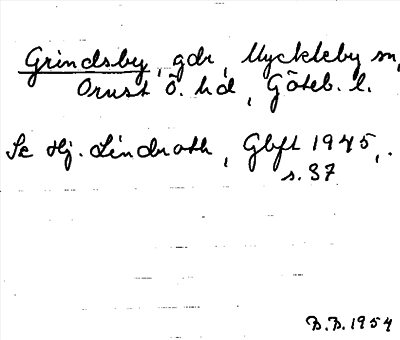 Grindsby, gdr, Myckleby sn,
Orust Ö. hd, Göteb. l.
Se Hj. Lindroth, Gbft 1945,
s. 37
B.B. 1954